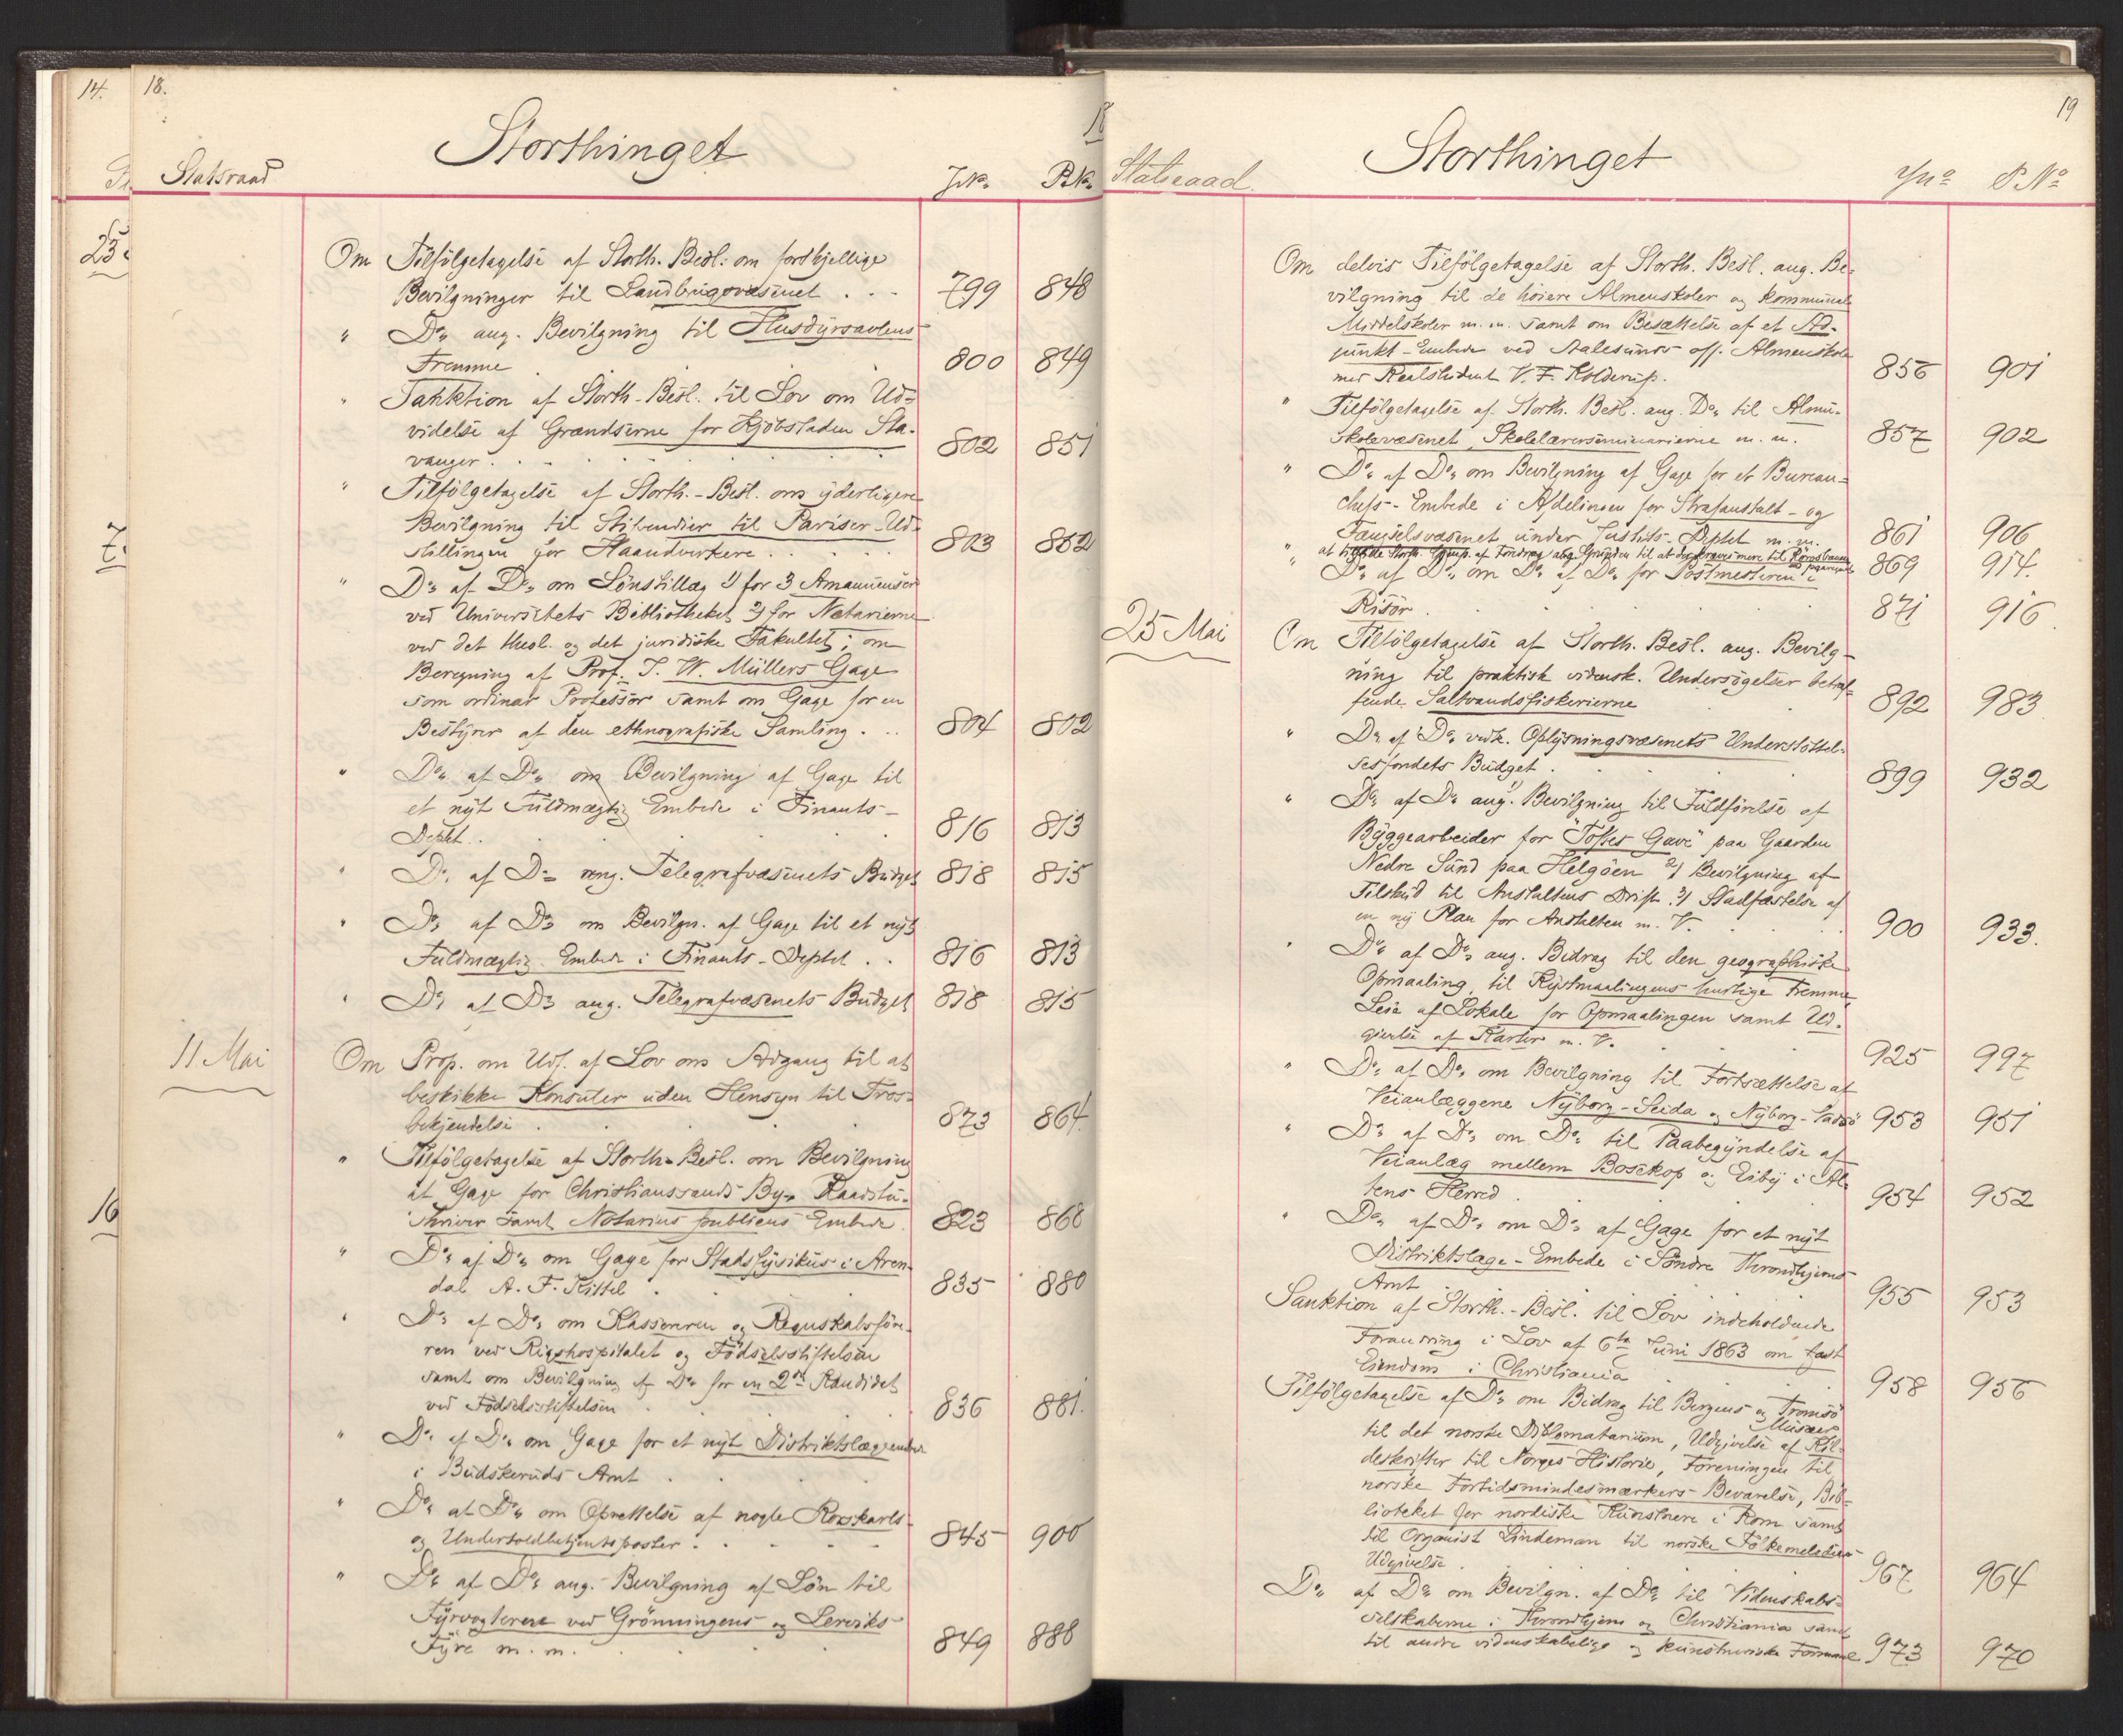 14.
23
7.
16
18.
Storthinget
18
Statsraad
Jnr.
P.Nr.
Om Tilfölgetagelse af Storth. Besl. om forskjellige
Bevilgninger til Landbrugsvæsenet . . . 799 848
" Do. ang. Bevilgning til Husdyrsavlens
Fremme . 800 849
" Sanktion af Storth.-Besl. til Lov om Ud-
videlse af Grændserne for Kjöbstaden Sta-
vanger . . . 802 851
" Tilfölgetagelse af Storth.-Besl. om yderligere
Bevilgning til Stibendier til Pariser-Ud-
stillingen for Haandverkere . . . . 803 852
" Do. af Do. om Lönstillæg 1) for 3 Amanuenser
ved Universitets Bibliotheket 2) for Notarierne
ved det theol. og det juridiske Fakultet; om
Beregning af Prof. J. W. Müllers Gage
som ordinær Professor samt om Gage for en
Bestyrer af den ethnografiske Samling . . . 804 802
" Do. af Do. om Bevilgning af Gage til
et nyt Fuldmægtig Embede i Finants-
Deptet . . 816 813
" Do. af Do. ang. Telegrafvæsenets Budget 818 815
" Do. af Do. om Bevilgn. af Gage til et nyt
Fuldmægtig Embede i Finants-Deptet . . 816 813
" Do. af Do. ang. Telegrafvæsenets Budget 818 815
11 Mai Om Prop. om Udf. af Lov om Adgang til at
beskikke Konsuler uden Hensyn til Tros-
bekjendelse . . . 873 864.
" Tilfölgetagelse af Storth.-Besl. om Bevilgning
af Gage for Christianssands By- Raadstu-
skriver samt Notarius publicus Embede . 823 868
" Do. af Do. om Gage for Stadsfysikus i Aren-
dal A. F. Kittel . . 835 880
" Do. af Do. om Kassereren og Regnskabsföre-
ren ved Rigshospitalet og Födselsstiftelsen
samt om Bevilgning af Do. for en 2den Kandidat
ved Födselsstiftelsen . . . 836 881.
" Do. af Do. om Gage for et nyt Distriktslægeembede
i Budskeruds Amt . . .
" Do. af Do. om Oprettelse af nogle Roerskarls-
og Undertoldbetjentsposter . . . . . 845 900
" Do. af Do. ang. Bevilgning af Lön til
Fyrvogterere ved Grönningens og Lerviks
Fyre m. m. . . . . 849 886
19
Storthinget
Statsraad.
Jno
P No
Om delvis Tilfölgetagelse af Storth. Besl. ang. Be-
vilgning til de höiere Almenskoler og kommunale
Middelskoler m. m. samt om Besættelse af et Ad-
junkt-Embede ved Aalesunds off. Almenskole
med Realstudent V. F. Holderup. 856 901
" Tilfölgetagelse af Storth. Besl. ang. Do. til Almu-
skolevæsenet, Skolelærerseminarierne m. m. 857 902
" Do. af Do. om Bevilgning af Gage for et Bureau-
chefs-Embede i Afdelingen for Strafanstalt- og
Fængselsvæsenet under Justits-Deptet m. m. 861 906
" at tilstille Storth. af Foredrag ang. Grunden til at der kræves mere til Rörosbanen 869 914.
" Do. af Do. om Do. af Do. for Postmesteren i
Risör . . . . . 871 916.
25 Mai Om Tilfölgetagelse af Storth. Besl. ang. Bevilg-
ning til praktisk vidensk. Undersögelser betræf-
fende Saltvandsfiskerierne 892 983.
" Do. af Do. vedk. Oplysningsvæsenets Understöttel-
sesfondets Budget . . . 899 932
" Do. af Do. ang. 1) Bevilgning til Fuldförelse af
Byggearbeider for "Toftes Gave" paa Gaarden
Nedre Sund paa Helgöen 2) Bevilgning af
Tilskud til Anstaltens Drift 3) Stadfæstelse af
en ny Plan for Anstalten m. V. . . 900 933.
" Do. af Do. ang. Bidrag til den geographiske
Opmaaling, til Kystmaalingens hurtige Fremme
Leie af Lokale for Opmaalingen samt Ud-
givelse af Karter m. V. . . 925 997
" Do. af Do. om Bevilgning til Fortsættelse af
Veianlæggene Nyborg-Seida og Nyborg-Vadsö 953 951
" Do. af Do. om Do. til Paabegyndelse af
Veianlæg mellem Bosekop og Eiby i Al-
tens Herred . 954 952
" Do. af Do. om Do. af Gage for et nyt
Distriktslæge-Embede i Söndre Throndhjems
Amt . . . . 955 953
Sanktion af Storth.-Besl. til Lov indeholdende
Forandring i Lov af 6te Juni 1863 om fast
Eiendom i Christiania . . 958 956
Tilfölgetagelse af Do. om Bidrag til Bergens og Tromsö
Museer
til det norske Diplomatarium, Udgivelse af Kil-
deskrifter til Norges Historie, Foreningen til
norske Fortidsmindesmærkers Bevarelse, Bib-
lioteket for nordiske Kunstnere i Rom samt
til Organist Lindeman til norske Folkemelodiers
Udgivelse . . . 967 964
Do. af Do. om Bevilgn. af Do. til Videnskabs-
selskaberne i Throndhjem og Christiania samt
til andre videnskabelige og kunstneriske Formaal 973 970